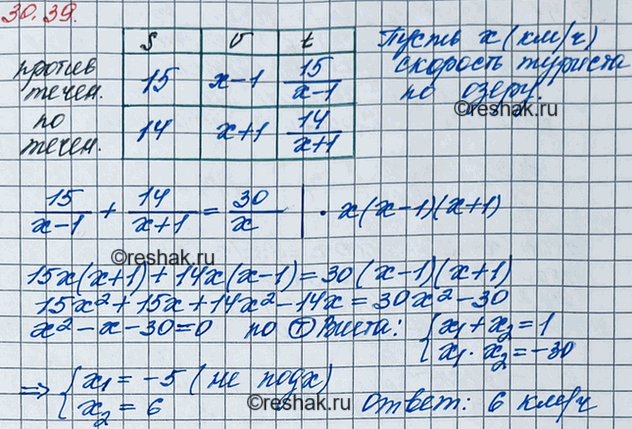 30.39.
S v t
против течен. 15 x-1 15/(x-1)
по течен. 14 x+1 14/(x+1)
Пусть x (км/ч)
скорость туриста
по озеру.
©reshak.ru
15/(x-1) + 14/(x+1) = 30/x | · x(x-1)(x+1)
©reshak.ru
15x(x+1)+14x(x-1)=30(x-1)(x+1)
15x²+15x+14x²-14x=30x²-30
x²-x-30=0 по Т Виета: { x₁+x₂=1
x₁·x₂=-30
⇒ { x₁=-5 (не подх)
x₂=6 Ответ: 6 км/ч
©reshak.ru